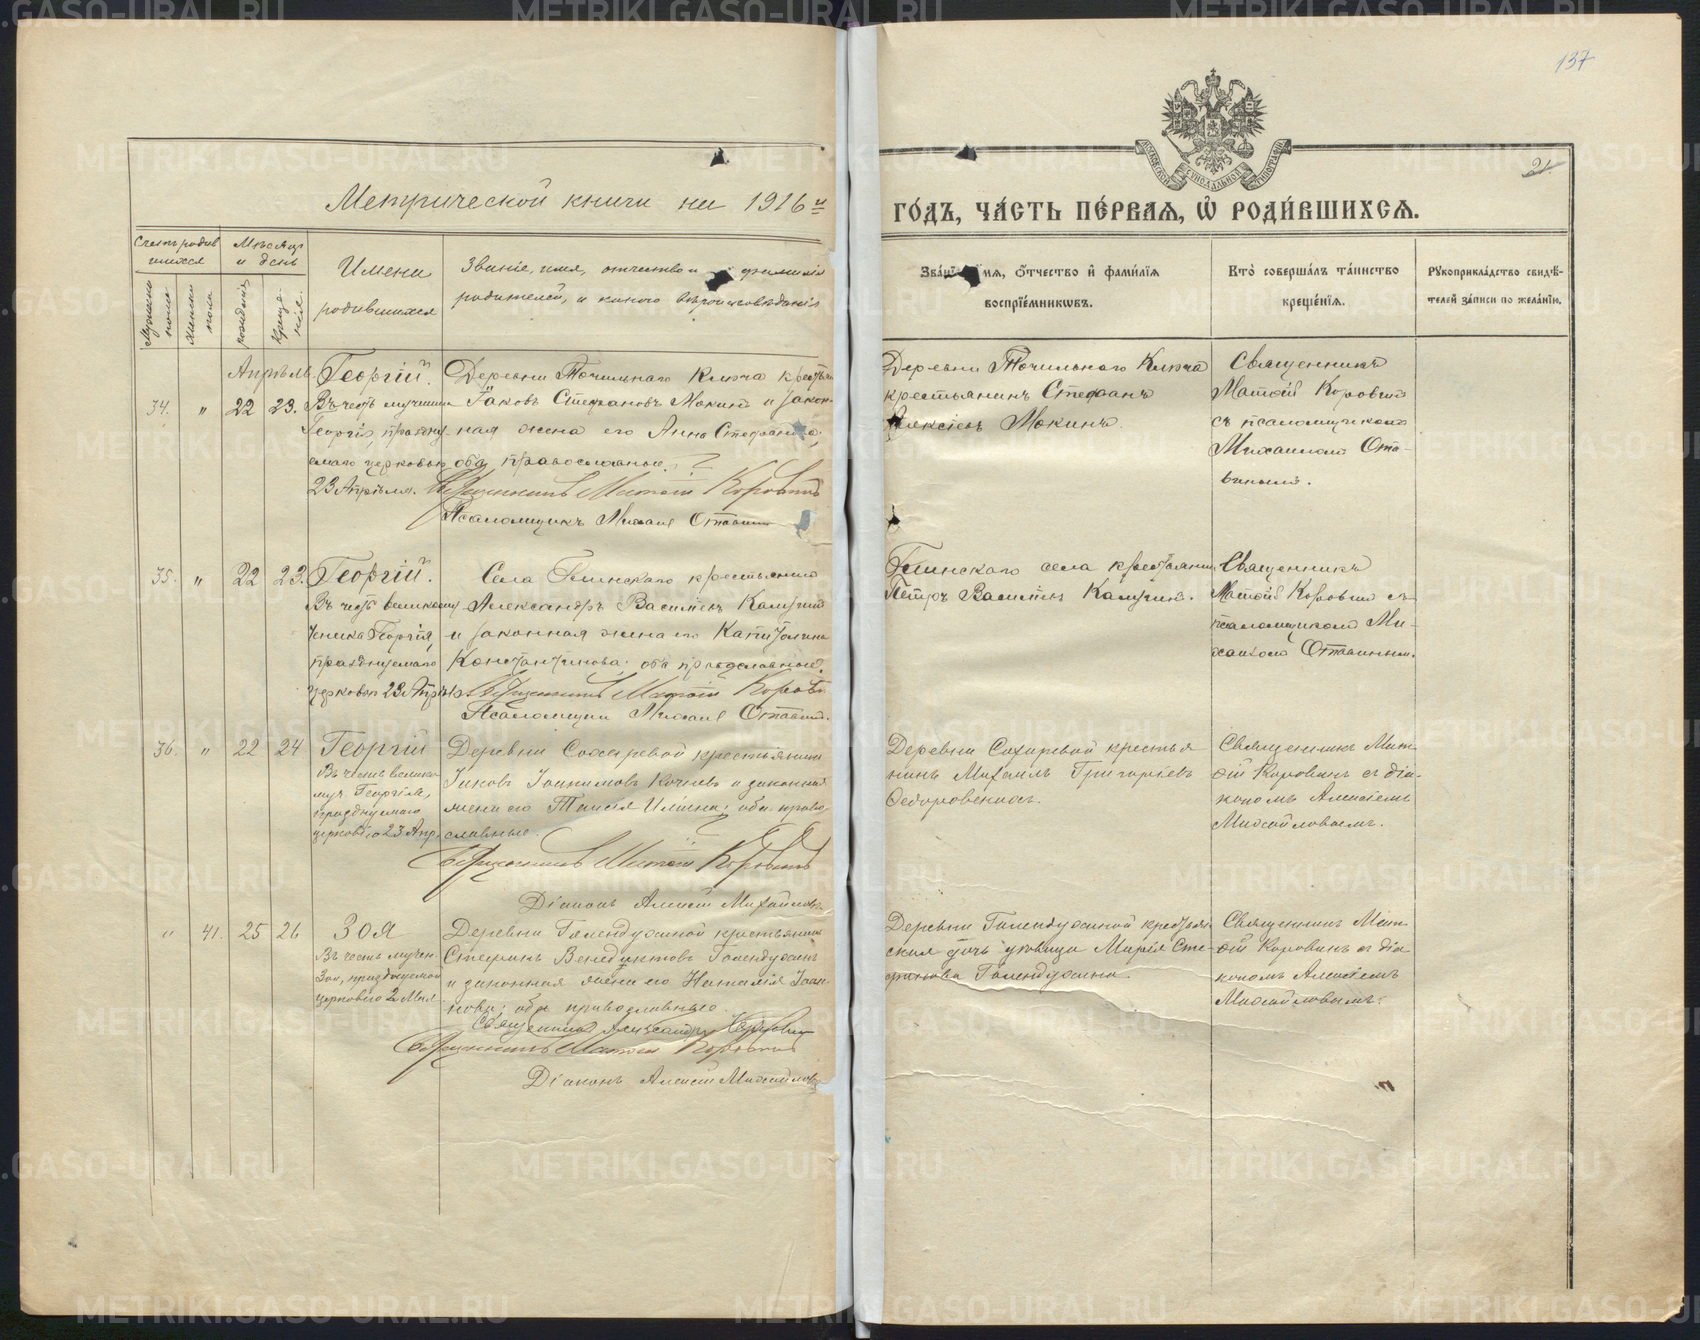 137
21
Метрической книги на 1916й
ГО́ДЪ, ЧА́СТЬ ПЕ́РВАЯ, Ѡ҆ РОДИ́ВШИХСЯ.
Счетъ родив
шихся
Мѣсяцъ
и день
Мужска
пола
Женска
пола
рожденія
креще-
нія.
Имена
родившихся
Званіе, имя, отчество и фамилія
родителей, и какого вѣроисповѣданія
Зва́ніе, и҆́мя, ѻ҆́тчество и҆ фами́лія
воспріе́мниковъ.
Кто̀ соверша́лъ та́инство
креще́нія.
Рꙋкоприкла́дство свидѣ́-
телей за́писи по жела́нію.
Апрѣль
34. " 22 23.
Георгій.
Въ честь мученика
Георгія, праздну-
емаго церковью
23 Апрѣля.
Деревни Точильнаго Ключа крестьянинъ
Іаковъ Стефановъ Мокинъ и закон-
ная жена его Анна Стефанова,
оба православные.
Священникъ Матѳій Коровинъ
Псаломщикъ Михаилъ Отавинъ
Деревни Точильнаго Ключа
крестьянинъ Стефанъ
Алексіевъ Мокинъ.
Священникъ
Матѳій Коровинъ
съ псаломщикомъ
Михаиломъ Ота-
винымъ.
35. " 22 23.
Георгій.
Въ честь великому-
ченика Георгія,
празднуемаго
церковью 23 Апрѣля
Села крестьянинъ
Александръ Васильевъ
и законная жена его Капитолина
Константинова; оба православные.
Священникъ Матѳій Коровинъ
Псаломщикъ Михаилъ Отавинъ.
села крестьянинъ
Петръ Васильевъ
Священникъ
Матѳій Коровинъ съ
псаломщикомъ Ми-
хаиломъ Отавинымъ.
36. " 22 24
Георгій
Въ честь велико-
муч. Георгія,
празднуемаго
церковію 23 Апр.
Деревни Сохаревой крестьянинъ
Іаковъ Іоакимовъ и законная
жена его Таисія Ильина; оба право-
славные.
Священникъ Матѳій Коровинъ
Діаконъ Алексій Михайловъ
Деревни Сохаревой крестья-
нинъ Михаилъ Григорьевъ
Ѳедоровскихъ.
Священникъ Мат-
ѳій Коровинъ съ діа-
кономъ Алексіемъ
Михайловымъ.
" 41. 25 26
Зоя
Въ честь мучен.
Зои, празднуемой
церковію 2 Мая
Деревни Галендухиной крестьянинъ
Стефанъ Венедиктовъ Галендухинъ
и законная жена его Наталія Іоан-
нова; оба православные.
Священникъ Александръ
Священникъ Матѳій Коровинъ
Діаконъ Алексій Михайловъ
Деревни Галендухиной крестьян-
ская дочь дѣвица Марія Сте-
фанова Галендухина.
Священникъ Мат-
ѳій Коровинъ съ діа-
кономъ Алексіемъ
Михайловымъ.
METRIKI.GASO-URAL.RU